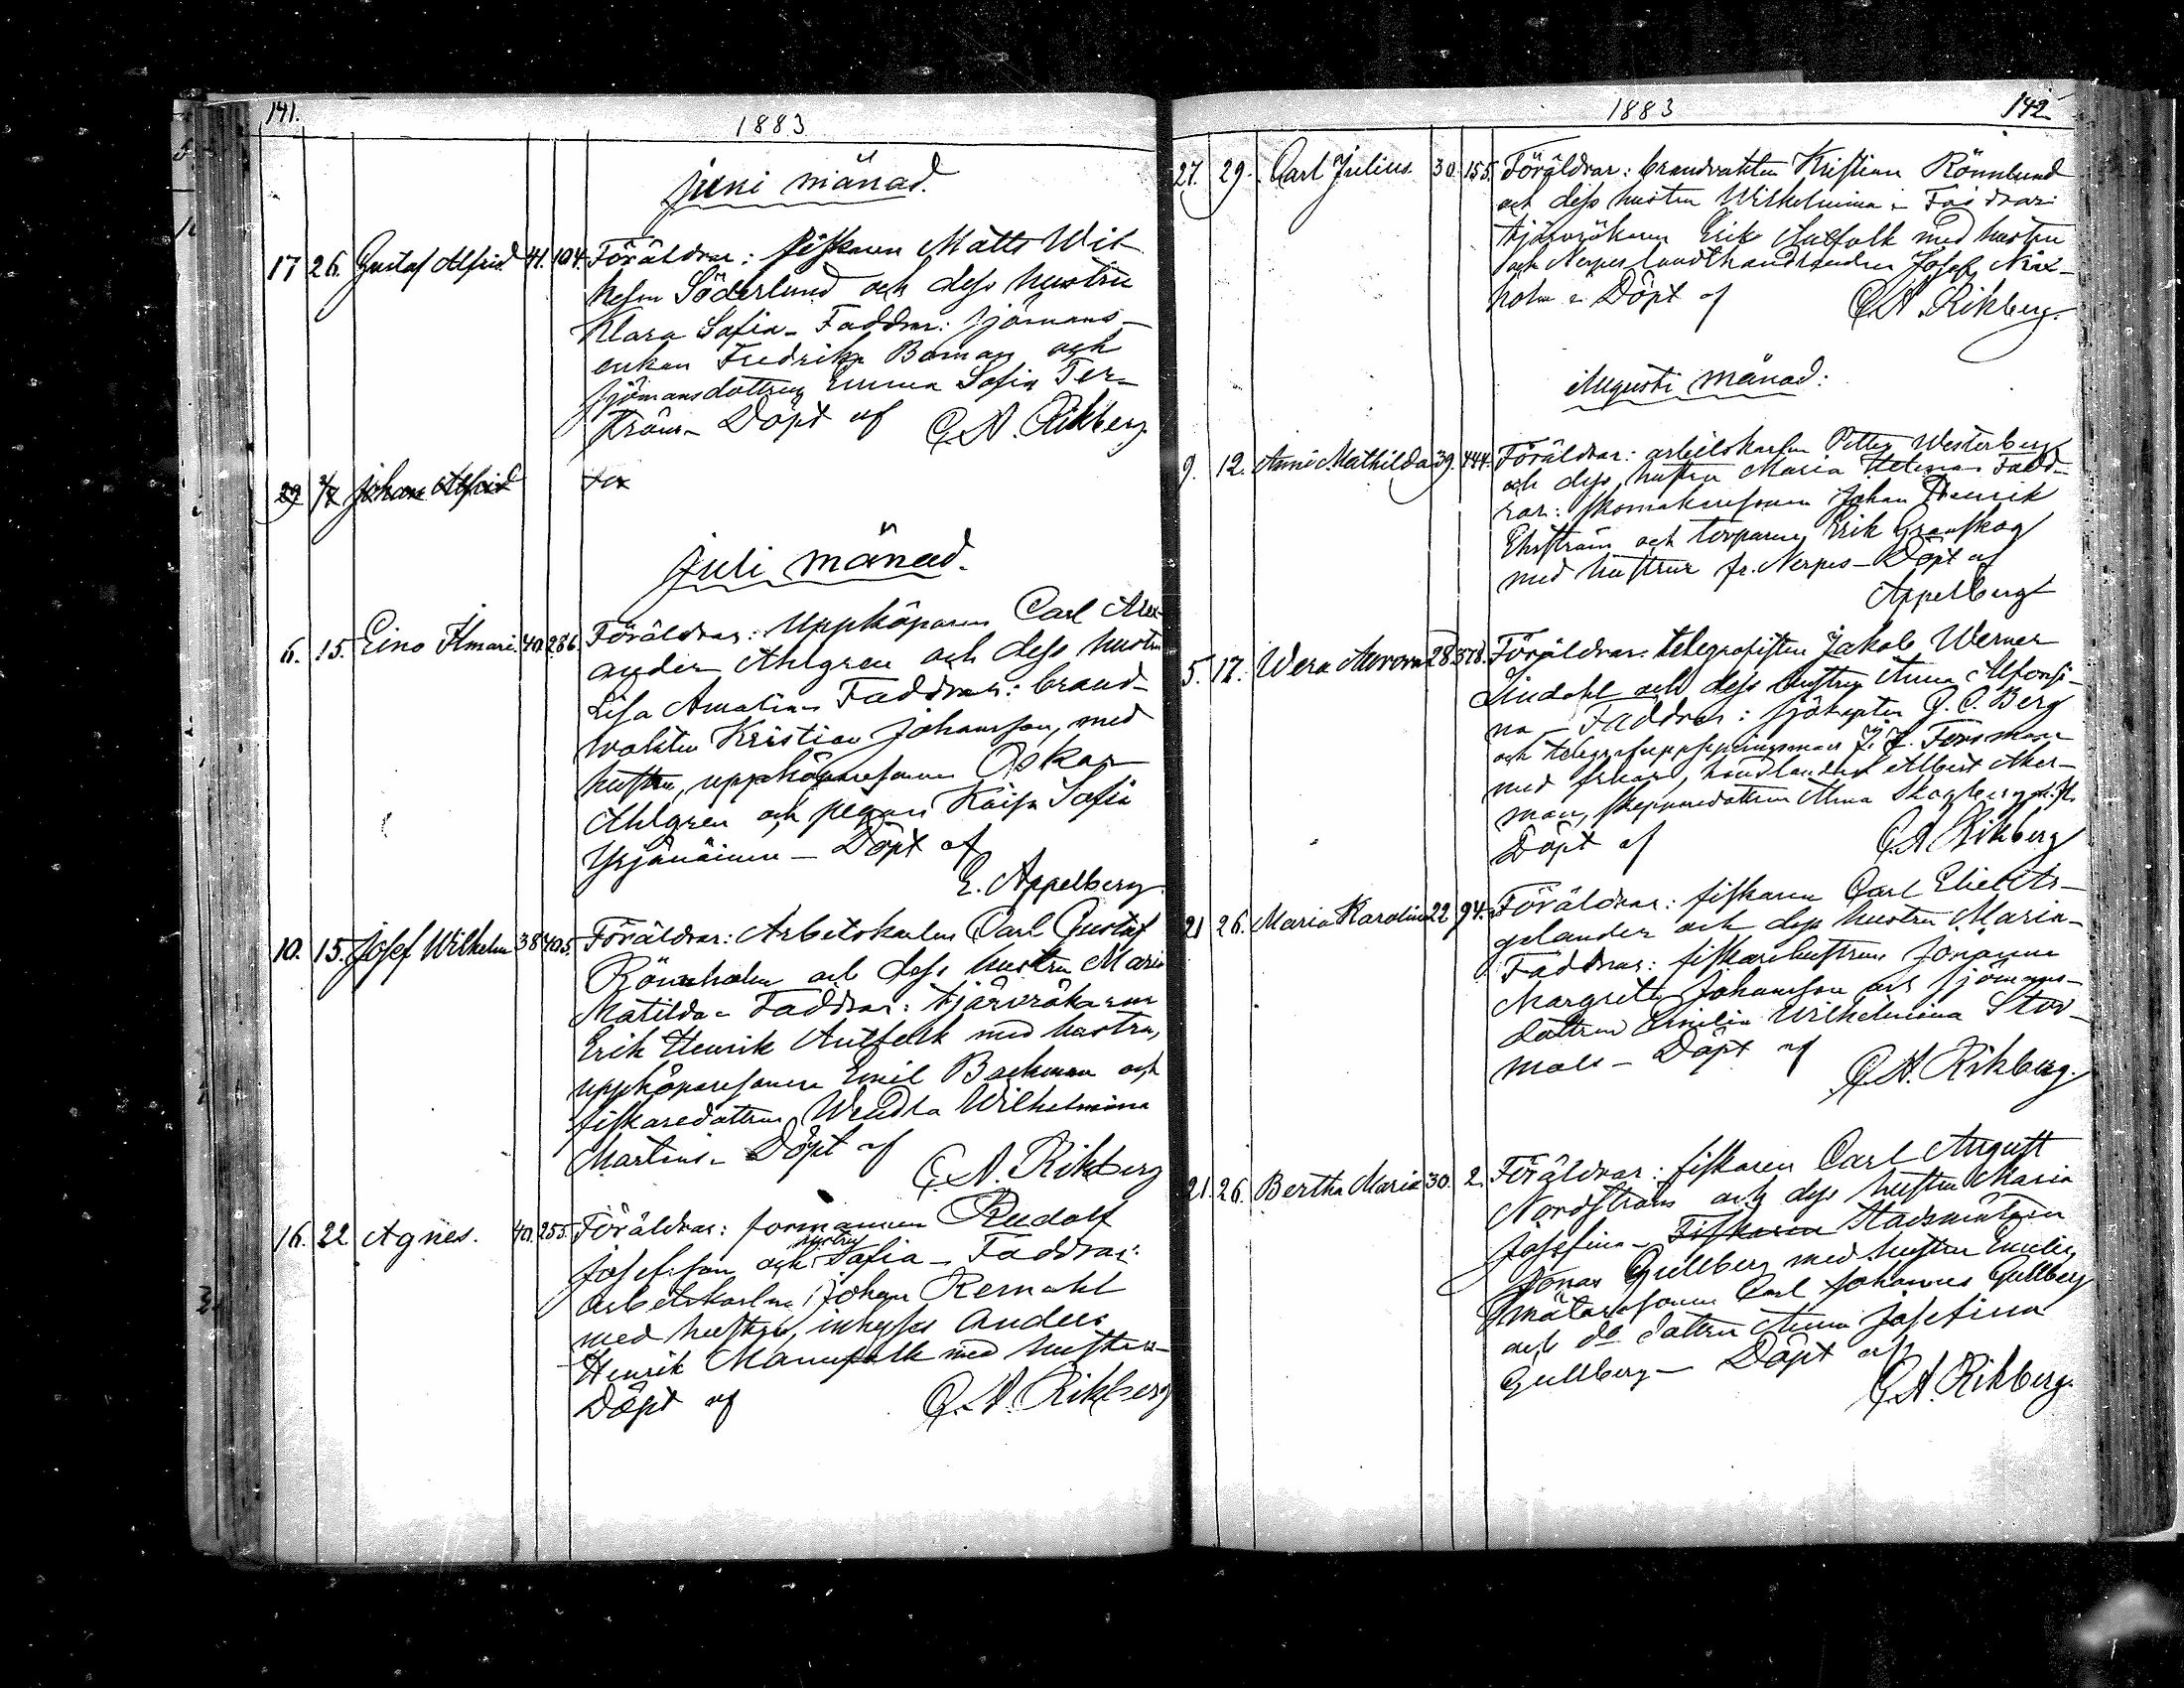 141.
1883
Juni månad.
17 26. Gustaf Alfrid. 41. 104. Föräldrar: fiskaren Matts Wil-
helm Söderlund och dess hustru
Klara Sofia - Faddrar: sjömans-
enkan Fredrika Boman och
sjömansdottren Emma Sofia Ter-
ström - Döpt af C. A. Rikberg.
29 Johan Alfrid
Juli månad.
6. 15. Eino Ilmari. 40. 286. Föräldrar: Uppköparen Carl Alex-
ander Ahlgren och dess hustru
Lisa Amalia - Faddrar: brand-
vakten Kristian Johansson, med
hustru, uppköparesonen Oskar
Ahlgren och pigan Kaisa Sofia
Yrjänäinen - Döpt af
E. Appelberg.
10. 15. Josef Wilhelm 38 405. Föräldrar: Arbetskarlen Carl Gustaf
Rönnholm och dess hustru Maria
Matilda - Faddrar: tjärvräkaren
Erik Henrik Antfolk med hustru,
uppköparesonen Emil Backman och
fiskaredottren Wendla Wilhelmina
Martins - Döpt af
C. A. Rikberg
16. 22 Agnes. 40. 255. Föräldrar: formannen Rudolf
Josefsson och hustru Sofia - Faddrar:
arbetskarlen Johan Remahl
med hustru, inhyses Anders
Henrik Mannfolk med hustru -
Döpt af C. A. Rikberg
1883
142
27. 29. Carl Julius. 30. 155. Föräldrar: brandvakten Kristian Rönnlund
och dess hustru Wilhelmina - Faddrar:
tjärvräkaren Erik Antfolk med hustru
och Nerpes landthandlanden Josef Näx-
holm - Döpt af C. A. Rikberg.
Augusti månad:
9. 12. Anna Mathilda 39. 444. Föräldrar: arbetskarlen Petter Westerberg
och dess hustru Maria Helena - Fadd-
rar: skomakaresonen Johan Henrik
Ehrström och torparen Erik Granskog
med hustrur fr. Nerpes - Döpt af
Appelberg
5. 12. Wera Aurora 28 378. Föräldrar: telegrafisten Jakob Werner
Lindahl och dess hustru Anna Alfonsi-
na - Faddrar: sjökapten G. C. Berg
och telegrafuppsyningsman J. J. Forsman
med fruar, handlanden Albert Åker-
man, skepparedottren Alma Skogberg
Döpt af C. A. Rikberg
21 26. Maria Karolina 22 94. Föräldrar: fiskaren Carl Eliel Ar-
gelander och dess hustru Maria -
Faddrar: fiskarehustrun Johanna
Margreta Johansson och sjömans-
dottren Emilia Wilhelmina Stor-
mals - Döpt af
C. A. Rikberg.
21. 26. Bertha Maria 30. 2. Föräldrar: fiskaren Carl August
Nordström och dess hustru Maria
Josefina - Fiskaren Stadsmätaren
Jonas Gullberg med hustru Emilia
mätaresonen Carl Johannes Gullberg
och do dottren Anna Josefina
Gullberg - Döpt af
C. A. Rikberg.